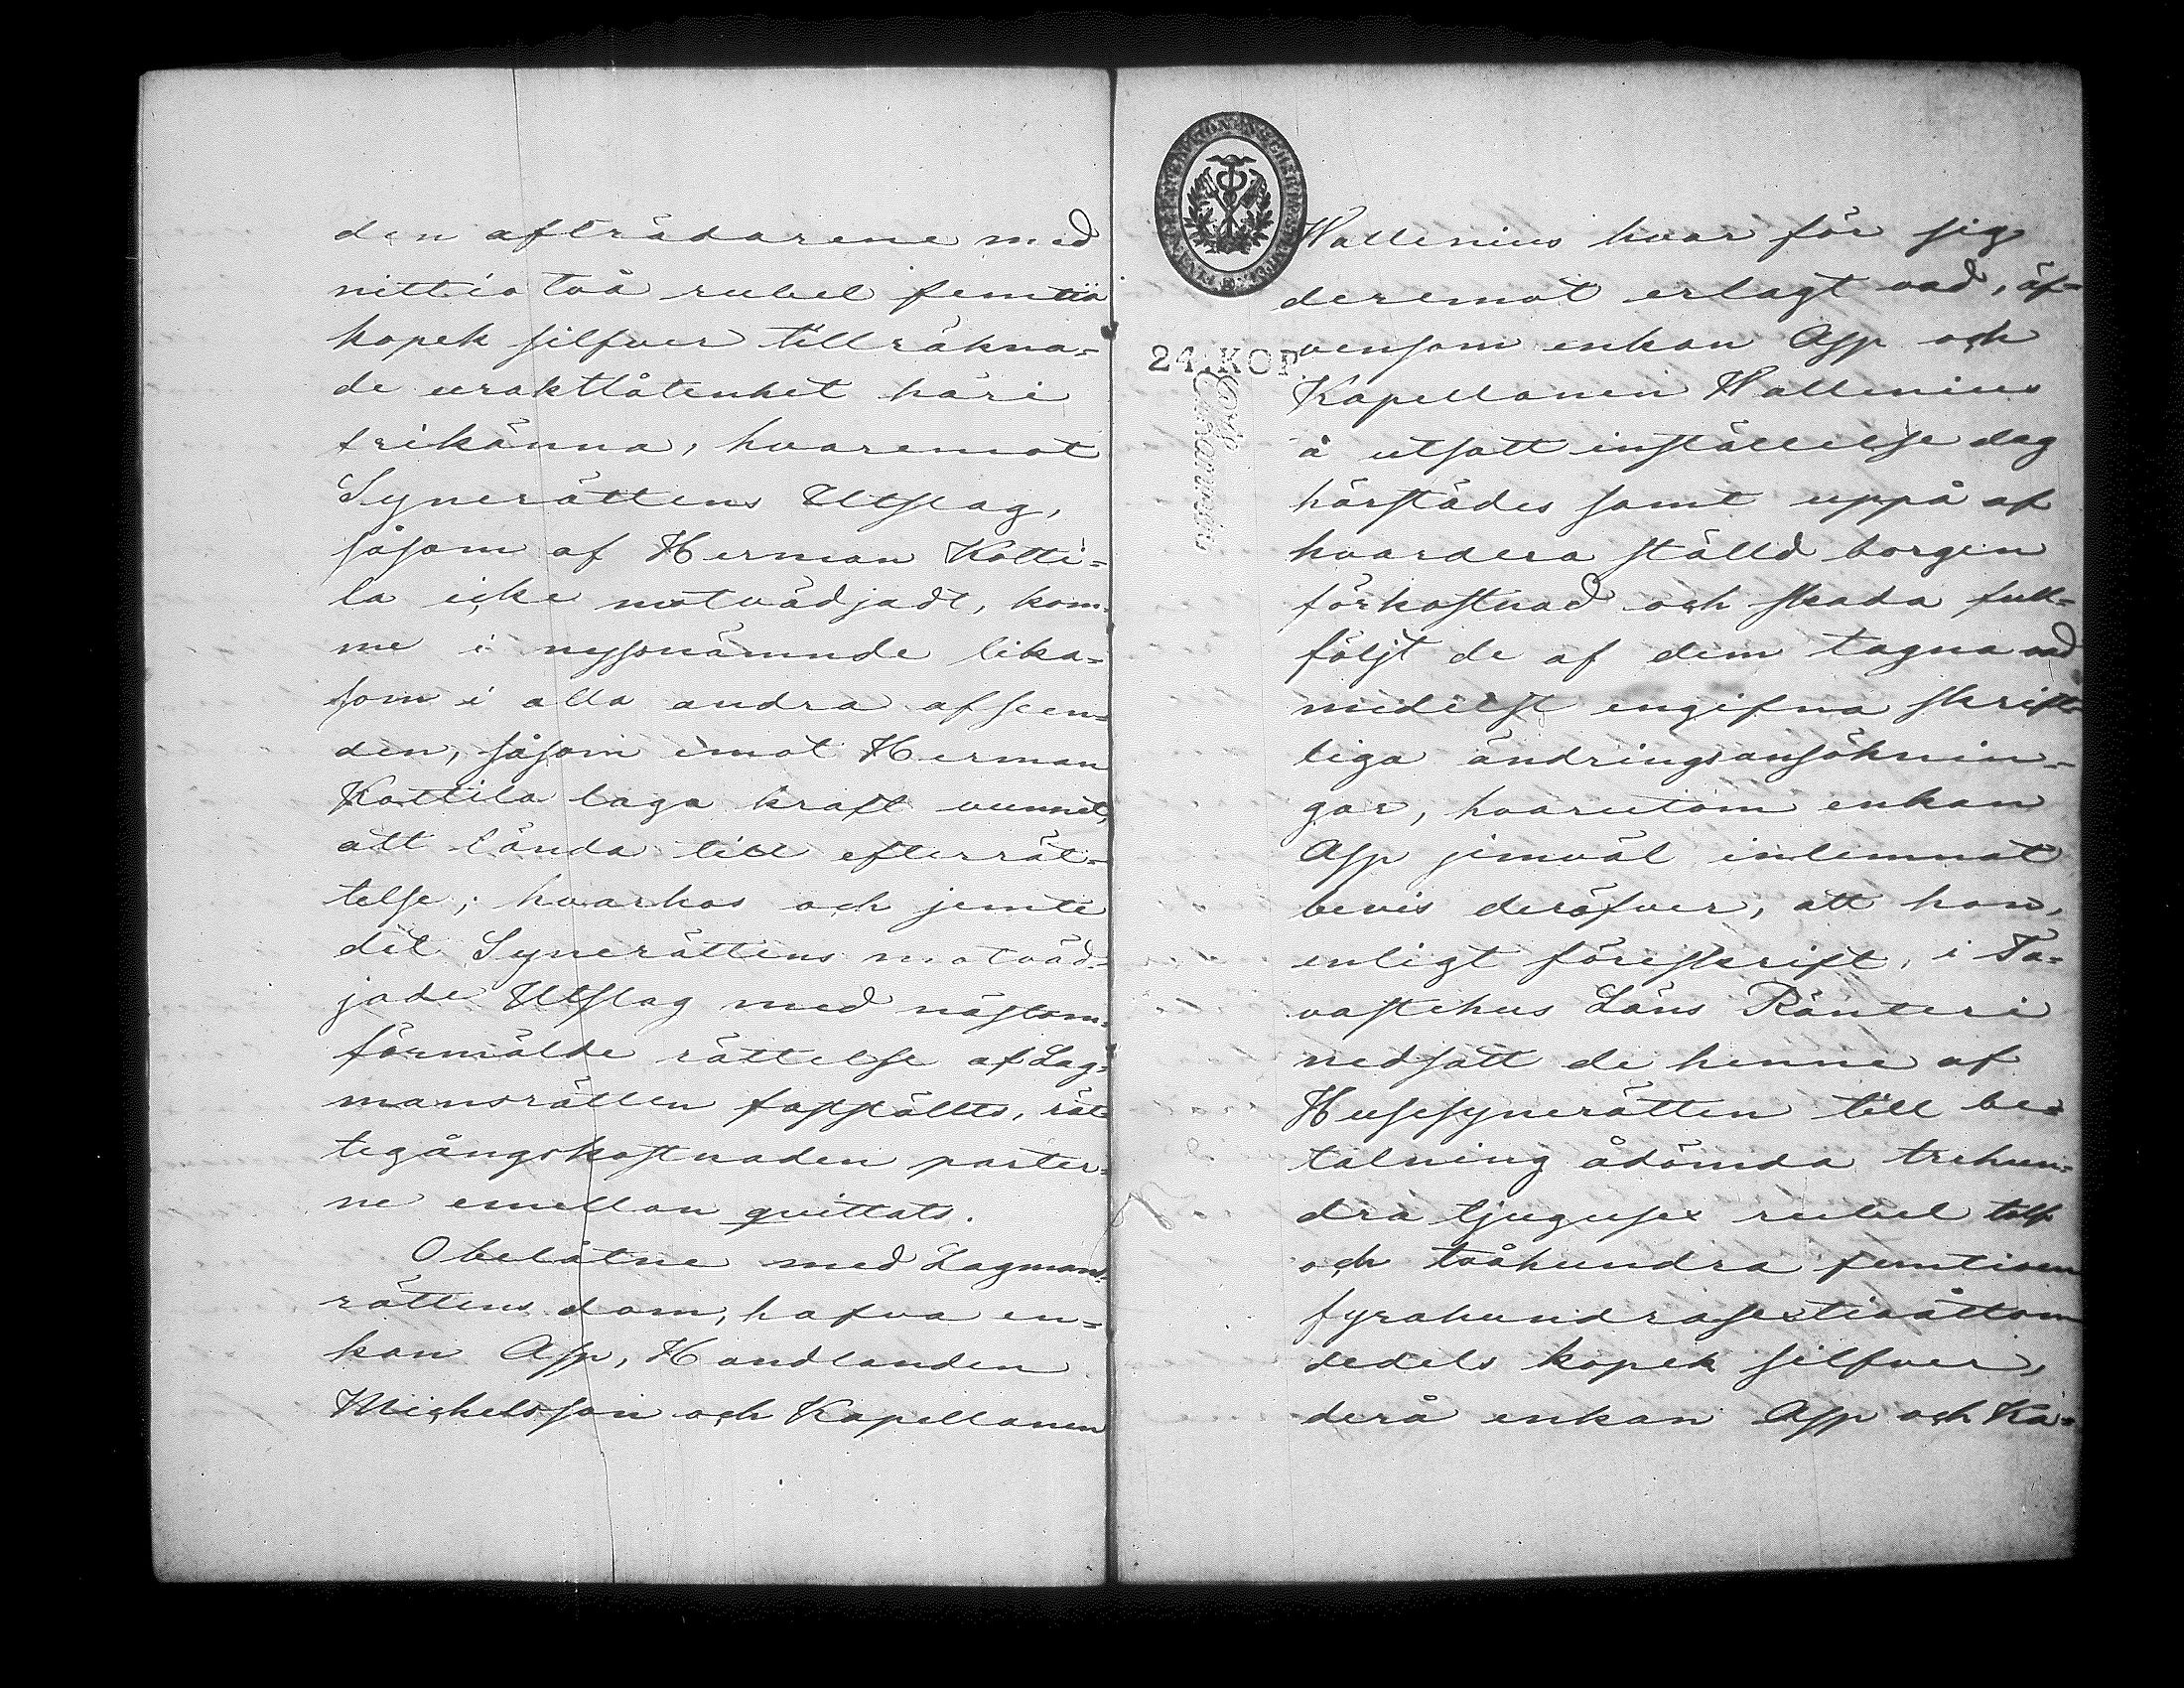 den afträdarene med
nittiotvå rubel femtio
kopek silfver tillräkna-
de uraktlåtenhet häri
frikänna, hvaremot
Synerättens Utslag,
såsom af Herman Kotti-
la icke motvädjadt, kom-
me i nyssnämnde lika-
som i alla andra afseen-
den, såsom emot Herman
Kottila laga kraft vunnet,
att lända till efterrät-
telse; hvarhos och jemte
det Synerättens motväd-
jade Utslag med nästom-
förmälde rättelse af Lag-
mansrätten fastställts, rät-
tegångskostnaden parter-
ne emellan quittats.
Obelåtne med Lagmans-
rättens dom, hafva en-
kan Asp, Handlanden
Mickelsson och Kapellanen
24.KOP.
Wallenius hvar för sig
deremot erlagt vad, äf-
vensom enkan Asp och
Kapellanen Wallenius
å utsatt inställelse dag
härstädes samt uppå af
hvardera ställd borgen
för kostnad och skada full-
följt de af dem tagna vad
medelst ingifna skrift-
liga ändringsansöknin-
gar, hvarutom enkan
Asp jemväl inlemnat
bevis deröfver, att hon,
enligt föreskrift, i Ta-
vastehus Läns Ränteri
nedsatt de henne af
Husesynerätten till be-
talning ådömda trehun-
dra tjugusex rubel tolf
och tvåhundra femtioen
fyrahundrasextioåtton
dedels kopek silfver,
derå enkan Asp och Ka-